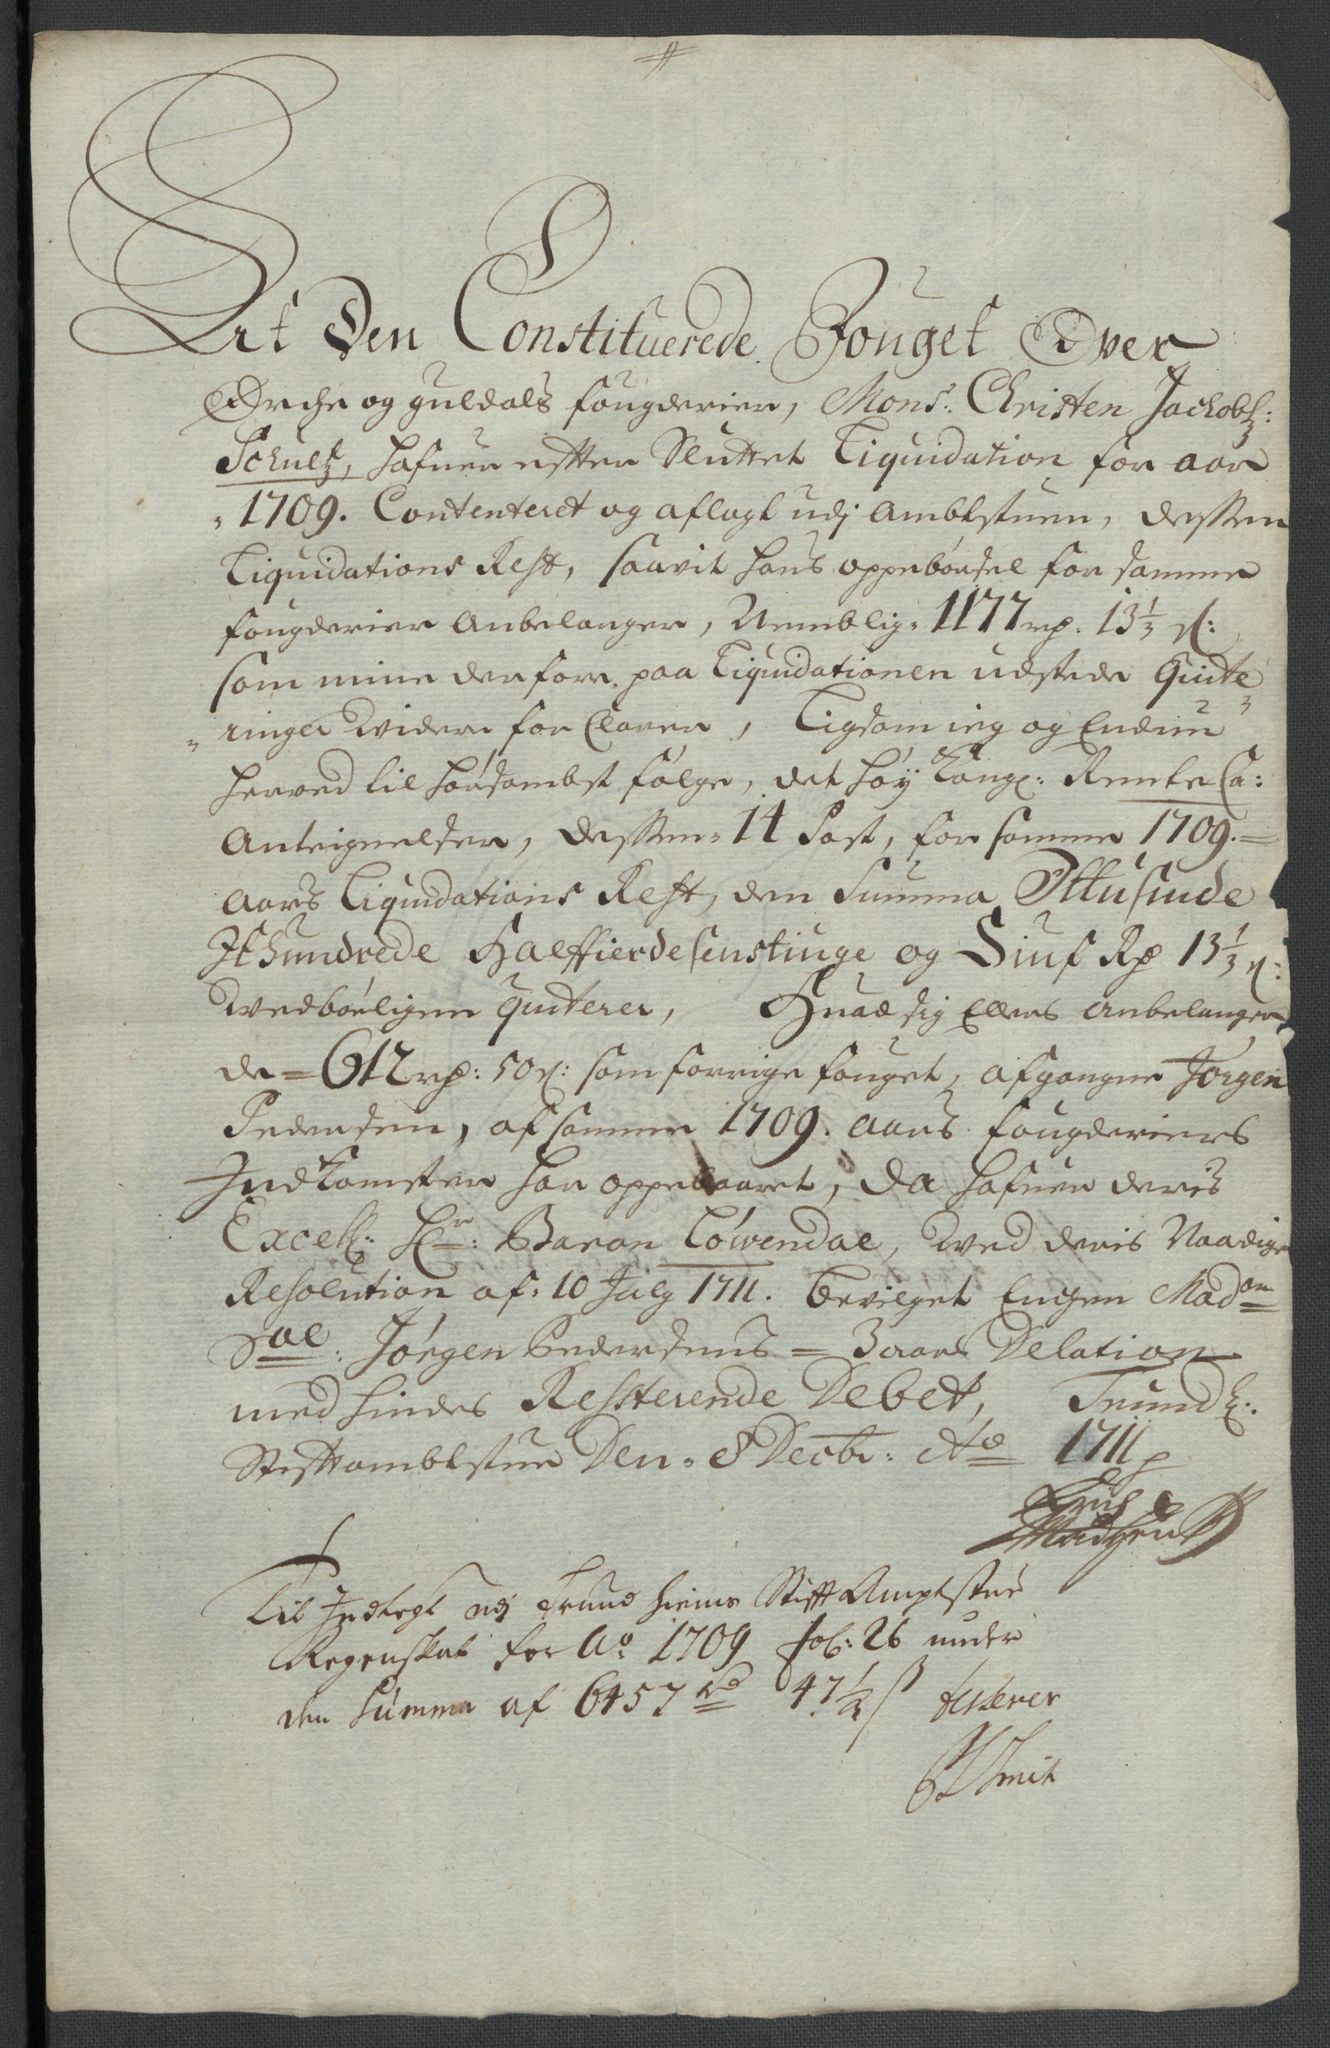 At Den Constituerede Fouget Over
Orche og guldals fougderier, Mons: Christen Jackobs:
Schultz, hafuer effter Sluttet Liquidation for aar
1709. Contenteret og aflagt udj Ambtstuen, dessen
Liquidations Rest, saavit hans oppebørsel for samme
fougderier Anbelanger, Nemblig 1177 rp. 13 1/3 s:
som mine derfore paa Liquidationen udstede Quite
ringer widere forclarer, Ligsom ieg og Endnu
herved til hørsambst følge, det høy Kongl: Rente Ca:
Anteignelser, dessen 14 Post, for samme 1709.
aars Liquidations Rest, den Summa Ettusinde
Ithundrede Halffierdesenstiuge og Siuf Rp 13 1/3 s:
wedbørligen quiterer, Huad sig Ellers anbelanger
de 612 rp: 50 s: som forrige fouget, afgangne Jørgen
Pedersen, af samme 1709. aars fougderiers
Indkomster har oppebaaret, Da hafuer deris
Excell: Hr: Baron Löwendal, wed deris Naadige
Resolution af 10 July 1711. bevilget Enchen Madam
Sal: Jørgen Pedersens 3 aars Delation
med hindes Resterende Debet, Trundh:
Stifftambtstue Den 8 Decbr: Ao 1711
Erich
Madssen
Til Indtegt udj Trundhiems StifftAmptstue
Regenskab for Ao 1709 fol: 26 under
den Summa af 6457 rd 47 1/2 s
Smit